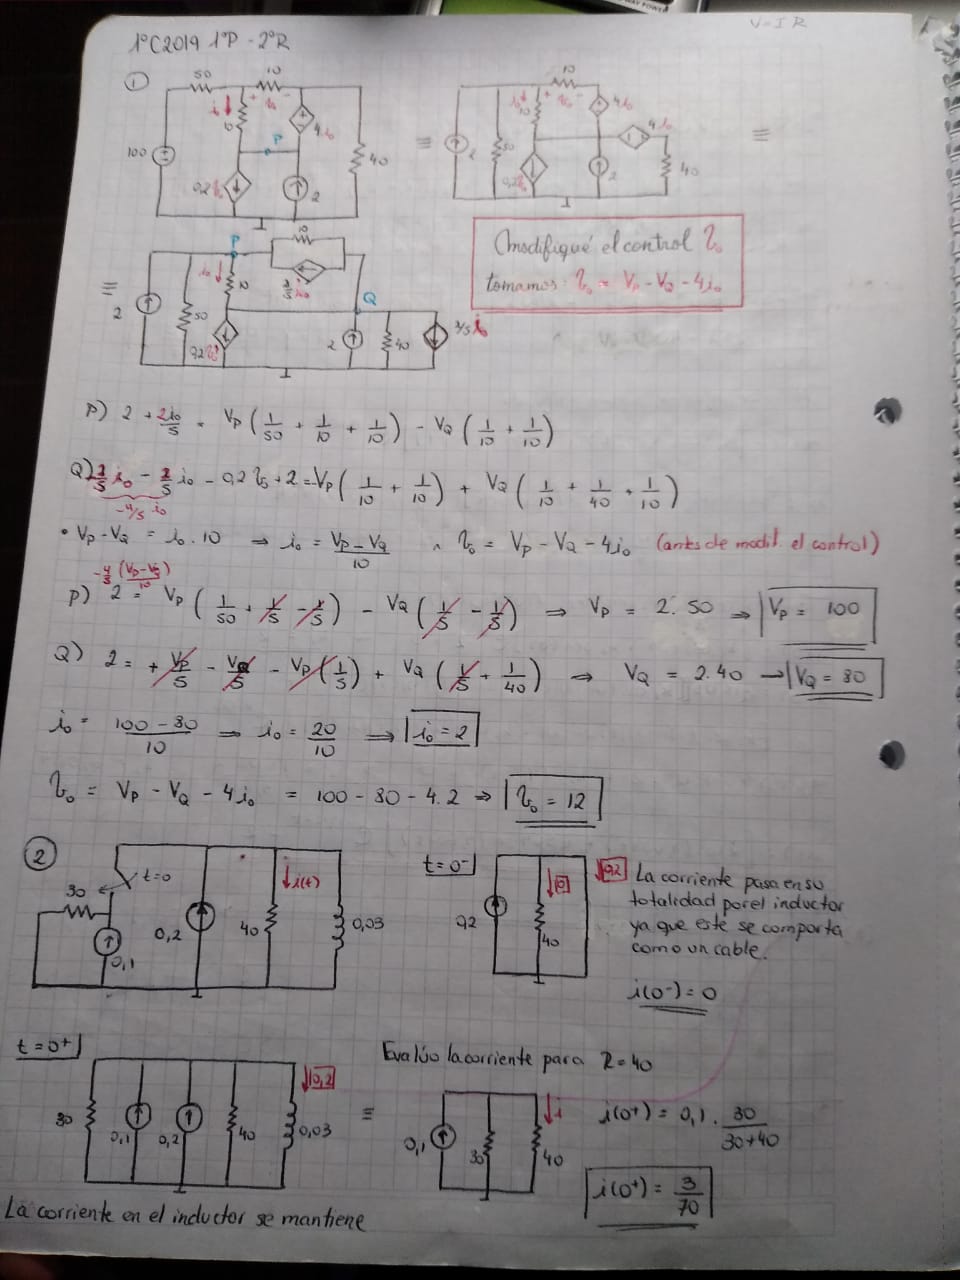 V=IR
1°C2019 1°P - 2°R
①
50
10
+ V₀ -
i₀
10
P
4i₀
100
40
0,2V₀
2
≡
10
i₀
10
+ V₀ -
4i₀
4i₀
2
50
0,2V₀
2
40
≡
≡
P
10
i₀
10
2/5 i₀
Q
2
50
0,2V₀
2
40
2/5 i₀
(modifiqué el control V₀
tomamos: V₀ = Vp - VQ - 4i₀
P) 2 + 2i₀/5 = Vp (1/50 + 1/10 + 1/10) - VQ (1/10 + 1/10)
Q) -2/5 i₀ - 2/5 i₀ - 0,2 V₀ + 2 = -Vp (1/10 + 1/10) + VQ (1/10 + 1/40 + 1/10)
-4/5 i₀
• Vp - VQ = i₀ . 10 ⇒ i₀ = Vp - VQ/10 ∧ V₀ = Vp - VQ - 4i₀ (antes de modif. el control)
P) 2 = Vp (1/50 + 1/5 - 1/5) - VQ (1/5 - 1/5) ⇒ Vp = 2.50 → Vp = 100
Q) 2 = + Vp/5 - VQ/5 - Vp (1/5) + VQ (1/5 + 1/40) ⇒ VQ = 2.40 → VQ = 80
i₀ = 100 - 80/10 ⇒ i₀ = 20/10 ⇒ i₀ = 2
V₀ = Vp - VQ - 4i₀ = 100 - 80 - 4.2 ⇒ V₀ = 12
②
t=0
30
0,1
0,2
40
i(t)
0,03
t=0⁻
0,2
0
40
0,2
La corriente pasa en su
totalidad por el inductor
ya que este se comporta
como un cable.
i(0⁻) = 0
t=0⁺
30
0,1
0,2
40
0,2
0,03
≡
Evalúo la corriente para R=40
0,1
30
i
40
i(0⁺) = 0,1 . 30/30+40
i(0⁺) = 3/70
La corriente en el inductor se mantiene